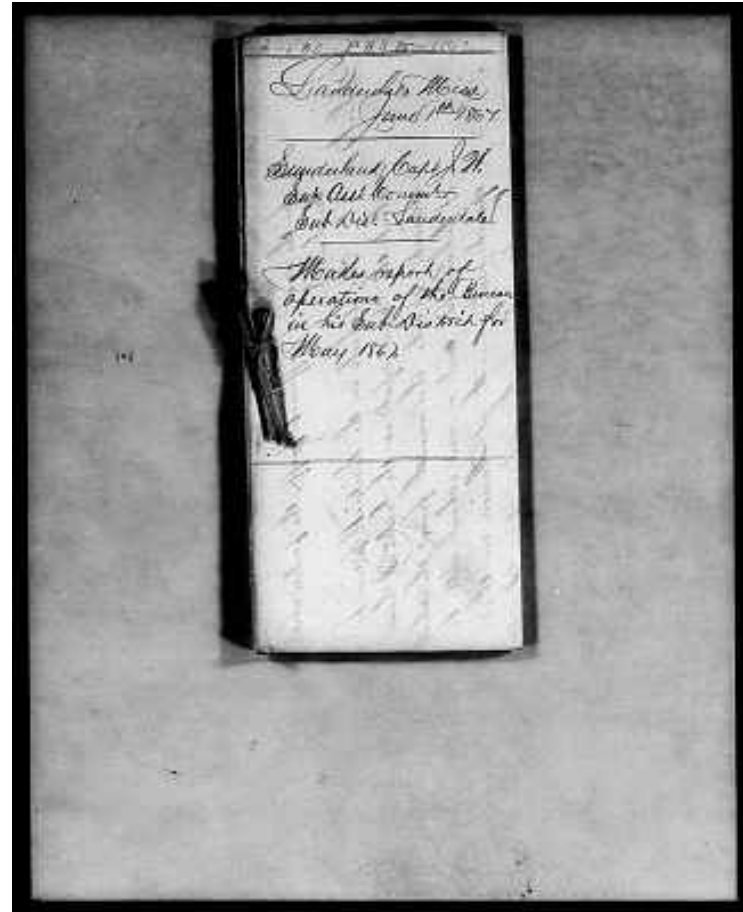 Lauderdale Miss
June 1st 1867
Sunderland, Capt J. H.
Sub Asst Commr
Sub Dist. Lauderdale
Makes report of
operations of the Bureau
in his Sub District for
May 1867